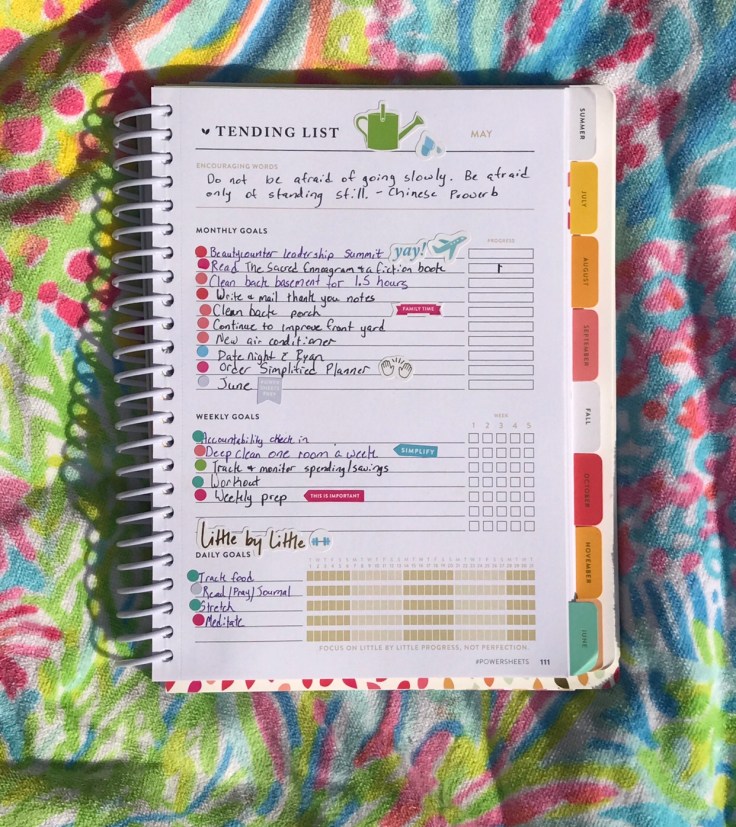 TENDING LIST
MAY
ENCOURAGING WORDS
Do not be afraid of going slowly. Be afraid
only of standing still. - Chinese Proverb
MONTHLY GOALS
PROGRESS
Beautycounter leadership Summit yay!
Read The Sacred Enneagram & a fiction book
Clean back basement for 1.5 hours
Write & mail thank you notes
Clean back porch FAMILY TIME
Continue to improve front yard
New air conditioner
Date night Ryan
Order Simplified Planner
June
WEEKLY GOALS
WEEK
1 2 3 4 5
Accountability check in
Deep clean one room a week SIMPLIFY
Track & monitor spending/savings
Workout
Weekly prep THIS IS IMPORTANT
Little by Little
DAILY GOALS
Track food
Read/Pray/Journal
Stretch
Meditate
FOCUS ON LITTLE BY LITTLE PROGRESS, NOT PERFECTION.
#POWERSHEETS 111
SUMMER
JULY
AUGUST
SEPTEMBER
FALL
OCTOBER
NOVEMBER
JUNE